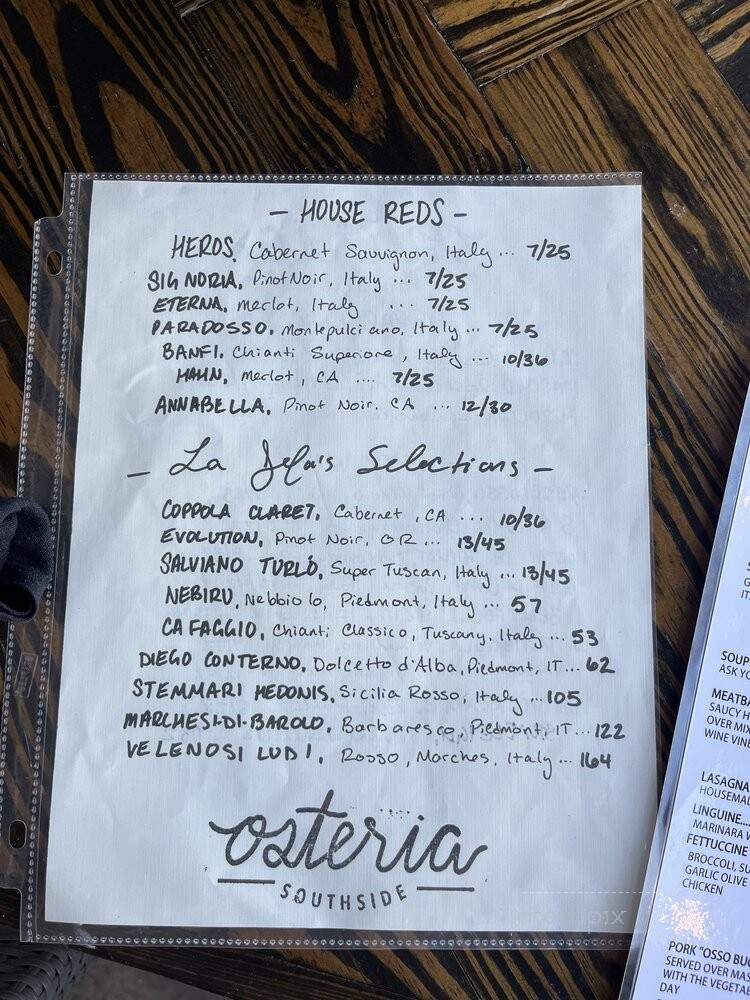 - HOUSE REDS -
HEROS, Cabernet Sauvignon, Italy ... 7/25
SIGNORIA, Pinot Noir, Italy ... 7/25
ETERNA, Merlot, Italy ... 7/25
PARADOSSO, Montepulciano, Italy ... 7/25
BANFI, Chianti Superiore, Italy ... 10/36
HAHN, Merlot, CA .... 7/25
ANNABELLA, Pinot Noir, CA ... 12/30
- La Selections -
COPPOLA CLARET, Cabernet, CA ... 10/36
EVOLUTION, Pinot Noir, OR ... 13/45
SALVIANO TURLÓ, Super Tuscan, Italy ... 13/45
NEBIRU, Nebbiolo, Piedmont, Italy ... 57
CAFAGGIO, Chianti Classico, Tuscany, Italy ... 53
DIEGO CONTERNO, Dolcetto d'Alba, Piedmont, IT ... 62
STEMMARI HEDONIS, Sicilia Rosso, Italy ... 105
MARCHESI-DI-BAROLO, Barbaresco, Piedmont, IT ... 122
VELENOSI LUDI, Rosso, Marches, Italy ... 164
osteria
SOUTHSIDE
SOUP
ASK YO
MEATBA
SAUCY
OVER MIX
WINE VIN
LASAGNA
HOUSEMAD
LINGUINE....
MARINARA
FETTUCCINE
BROCCOLI, SU
GARLIC OLIVE
CHICKEN
PORK "OSSO BUC
SERVED OVER MAS
WITH THE VEGETAB
DAY